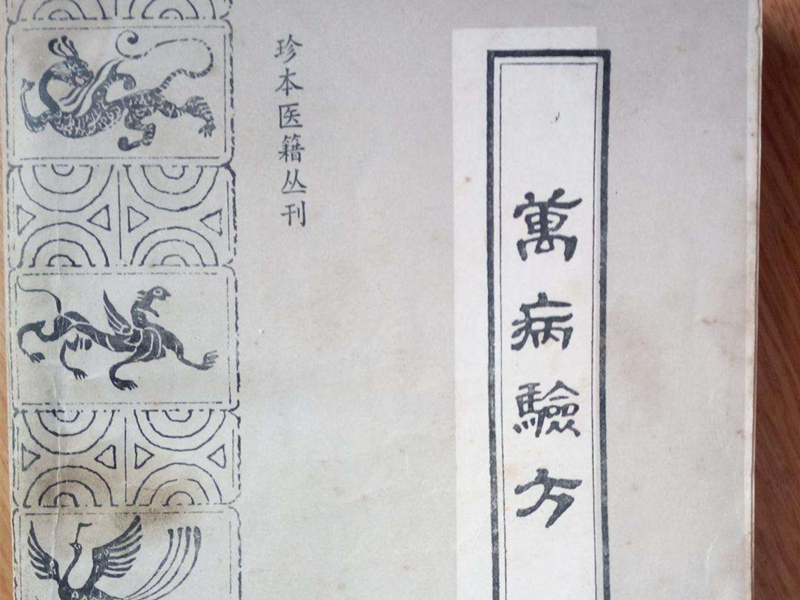 珍本医籍丛刊
萬病驗方